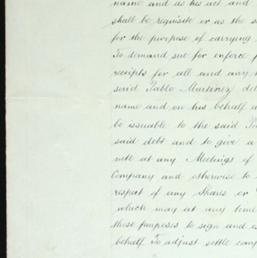 name and as his act and
shall be requisite or as the s
for the purpose of carrying
To demand sue for enforce p
receipts for all and any
said Pablo Martinez de
name and on his behalf a
be issuable to the said P
said debt and to give a
vote at any Meetings of
Company and otherwise to
respect of any Shares or
which may at any time
these purposes to sign and e
behalf To adjust settle comp